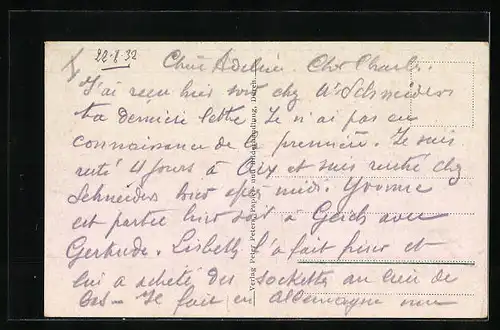 22-8-32 Chère Adeline. Cher Charles.
J'ai reçu hier soir chez Mr Schneiders
ta dernière lettre. Je n'ai pas eu
connaissance de la première. Je suis
resté 4 jours à Aix et suis rentré chez
Schneiders hier après midi. Yvonne
est partie hier soir à Geich avec
Gertrude. Lisbeth l'a fait friser et
lui a acheté des sockettes au lieu de
bas - Je fait en Allemagne une
Verlag Peter Peters, Papier- und Bilderhandlung, Düren.